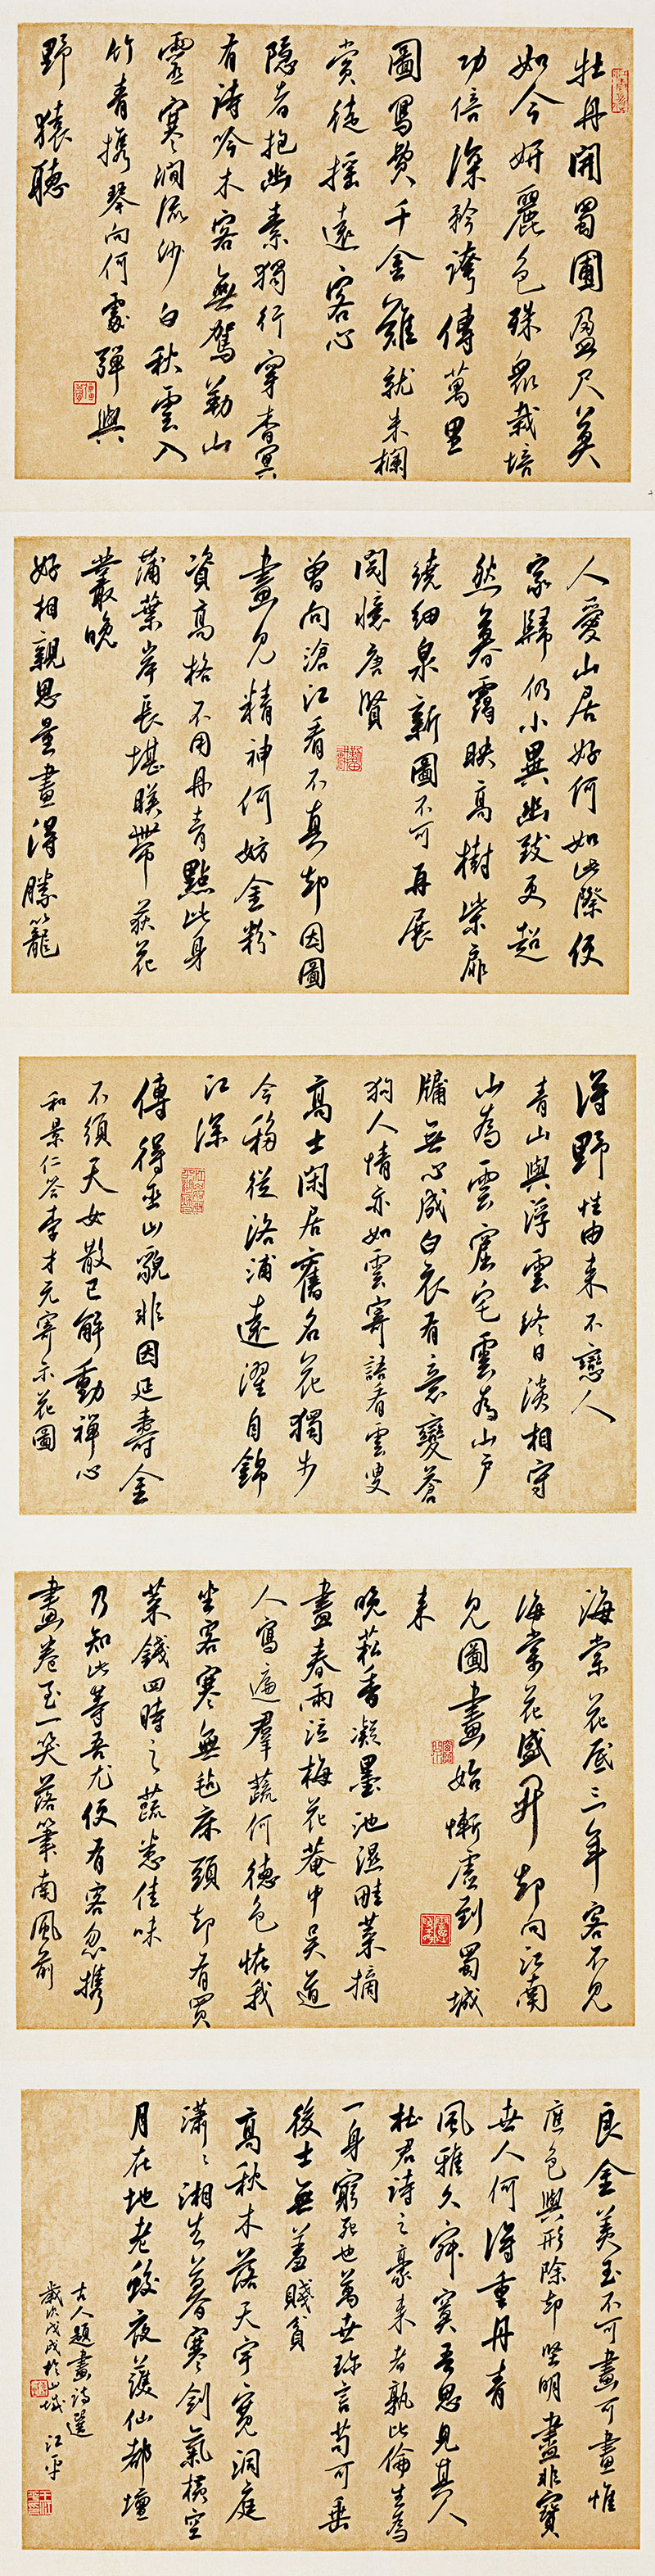 牡丹開蜀圃盈尺莫
如今妍麗色殊眾栽培
功倍深矜誇傳萬里
圖寫費千金難就朱欄
賞徒搖遠客心
隱者抱幽素獨行穿杳冥
有詩吟木客無駕勒山
靈寒澗流沙白秋雲入
竹青攜琴向何處彈與
野猿聽
人愛山居好何如此際便
家歸仍小異幽致更超
然暮靄映高樹柴扉
繞細泉新圖不可再展
閱憶唐賢
曾向滄江看不真却因圖
畫見精神何妨金粉
資高格不用丹青點此身
蒲葉岸長堪映帶荻花
叢晚
好相親思量畫得勝籠
得野性由來不戀人
青山與浮雲終日澹相守
山為雲窟宅雲為山戶
牖無心成白衣有意變蒼
狗人情亦如雲寄語看雲叟
高士閑居舊名花獨步
今移從洛浦遠濯自錦
江深
傳得巫山貌非因延壽金
不須天女散已解動禪心
和景仁答李才元寄示花圖
海棠花底三年客不見
海棠花盛開却向江南
見圖畫始慚虛到蜀城
來
晚菘香凝墨池濕畦菜摘
盡春雨泣梅花菴中吳道
人寫遍群蔬何德色怪我
坐客寒無氈床頭却有買
菜錢四時之蔬悉佳味
乃知此等吾尤便有客忽攜
畫卷至一笑落筆南風前
良金美玉不可畫可畫惟
應色與形除却堅明盡非寶
世人何得重丹青
風雅久寂寞吾思見其人
杜君詩之豪來者孰比倫生為
一身窮死也萬世珍言苟可垂
後士無羞賤貧
高秋木落天宇寬洞庭
瀟瀟湘生暮寒劍氣橫空
月在地老蛟夜護仙都壇
古人題畫詩選
歲次戊戌於山城 江平